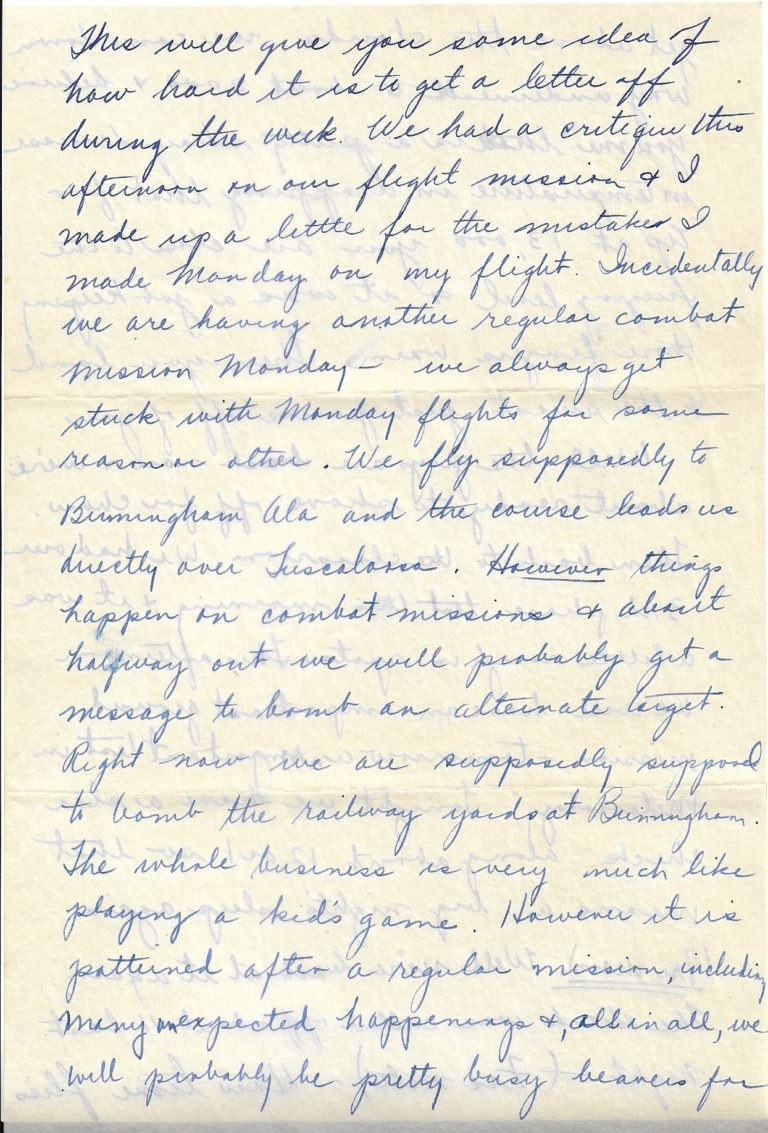 This will give you some idea of
how hard it is to get a letter off
during the week. We had a critique this
afternoon on our flight mission & I
made up a little for the mistakes I
made Monday on my flight. Incidentally
we are having another regular combat
mission Monday - we always get
stuck with Monday flights for some
reason or other. We fly supposedly to
Birmingham Ala and the course leads us
directly over Tuscaloosa. However things
happen on combat missions & about
halfway out we will probably get a
message to bomb an alternate target.
Right now we are supposedly supposed
to bomb the railway yards at Birmingham.
The whole business is very much like
playing a kid's game. However it is
patterned after a regular mission, including
many unexpected happenings &, all in all, we
will probably be pretty busy beavers for